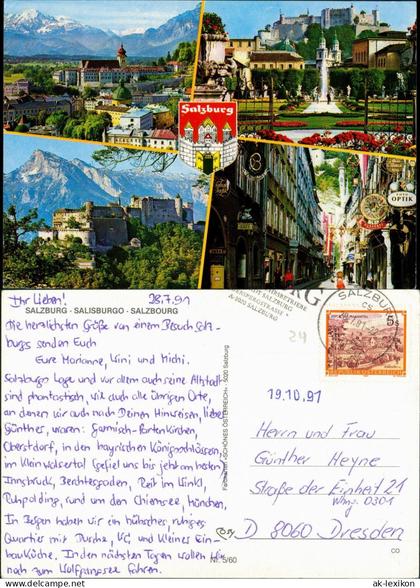 Salzburg
OPTIK
Ihr Lieben! 28.7.91
SALZBURG · SALISBURGO · SALZBOURG
Die herzlichsten Grüße von einem Besuch Salz-
burgs senden Euch
Eure Marianne, Kini und Michi.
Salzburgs Lage und vor allem auch seine Altstadt
sind phantastisch, wie auch alle übrigen Orte,
an denen wir auch nach Deinen Hinweisen, lieber
Günther, waren: Garmisch-Partenkirchen,
Oberstdorf, in den bayrischen Königsschlössern,
im Kleinwalsertal (gefiel uns bis jetzt am besten)
Innsbruck, Berchtesgaden, Reit im Winkl,
Ruhpolding, rund um den Chiemsee, München.
In haben wir ein hübsches, ruhiges
Quartier mit Dusche, WC und kleiner Ein-
bauküche. In den nächsten Tagen wollen wir
noch zum Wolfgangsee fahren.
Farbkarten «SCHÖNES ÖSTERREICH» · 5020 Salzburg
Nr. 5/60
SALZBURG
A-5020 SALZBURG
5s
24
19.10.91
Herrn und Frau
Günther Heyne
Straße der Einheit 21
Whg. 0301
D 8060 Dresden
CO
© ak-ansichtskarten.de